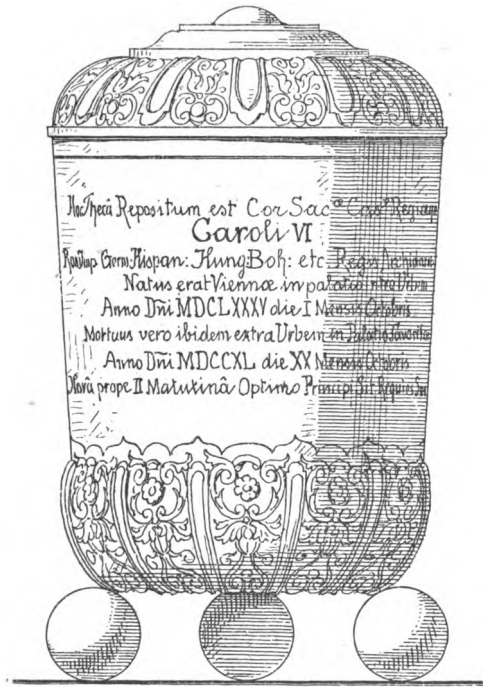 Hac Thecâ Repositum est Cor Sac
Caroli VI
Germ: Hispan: Hung: Boh: etc Regis
Natus erat Viennæ in palatio intra Urbem
Anno Dñi MDCLXXXV die I Mensis Octobris
Mortuus vero ibidem extra Urbem in Palatio
Anno Dñi MDCCXL die XX Mensis Octobris
Horâ prope II Matutinâ Optimo Principi Sit Requies